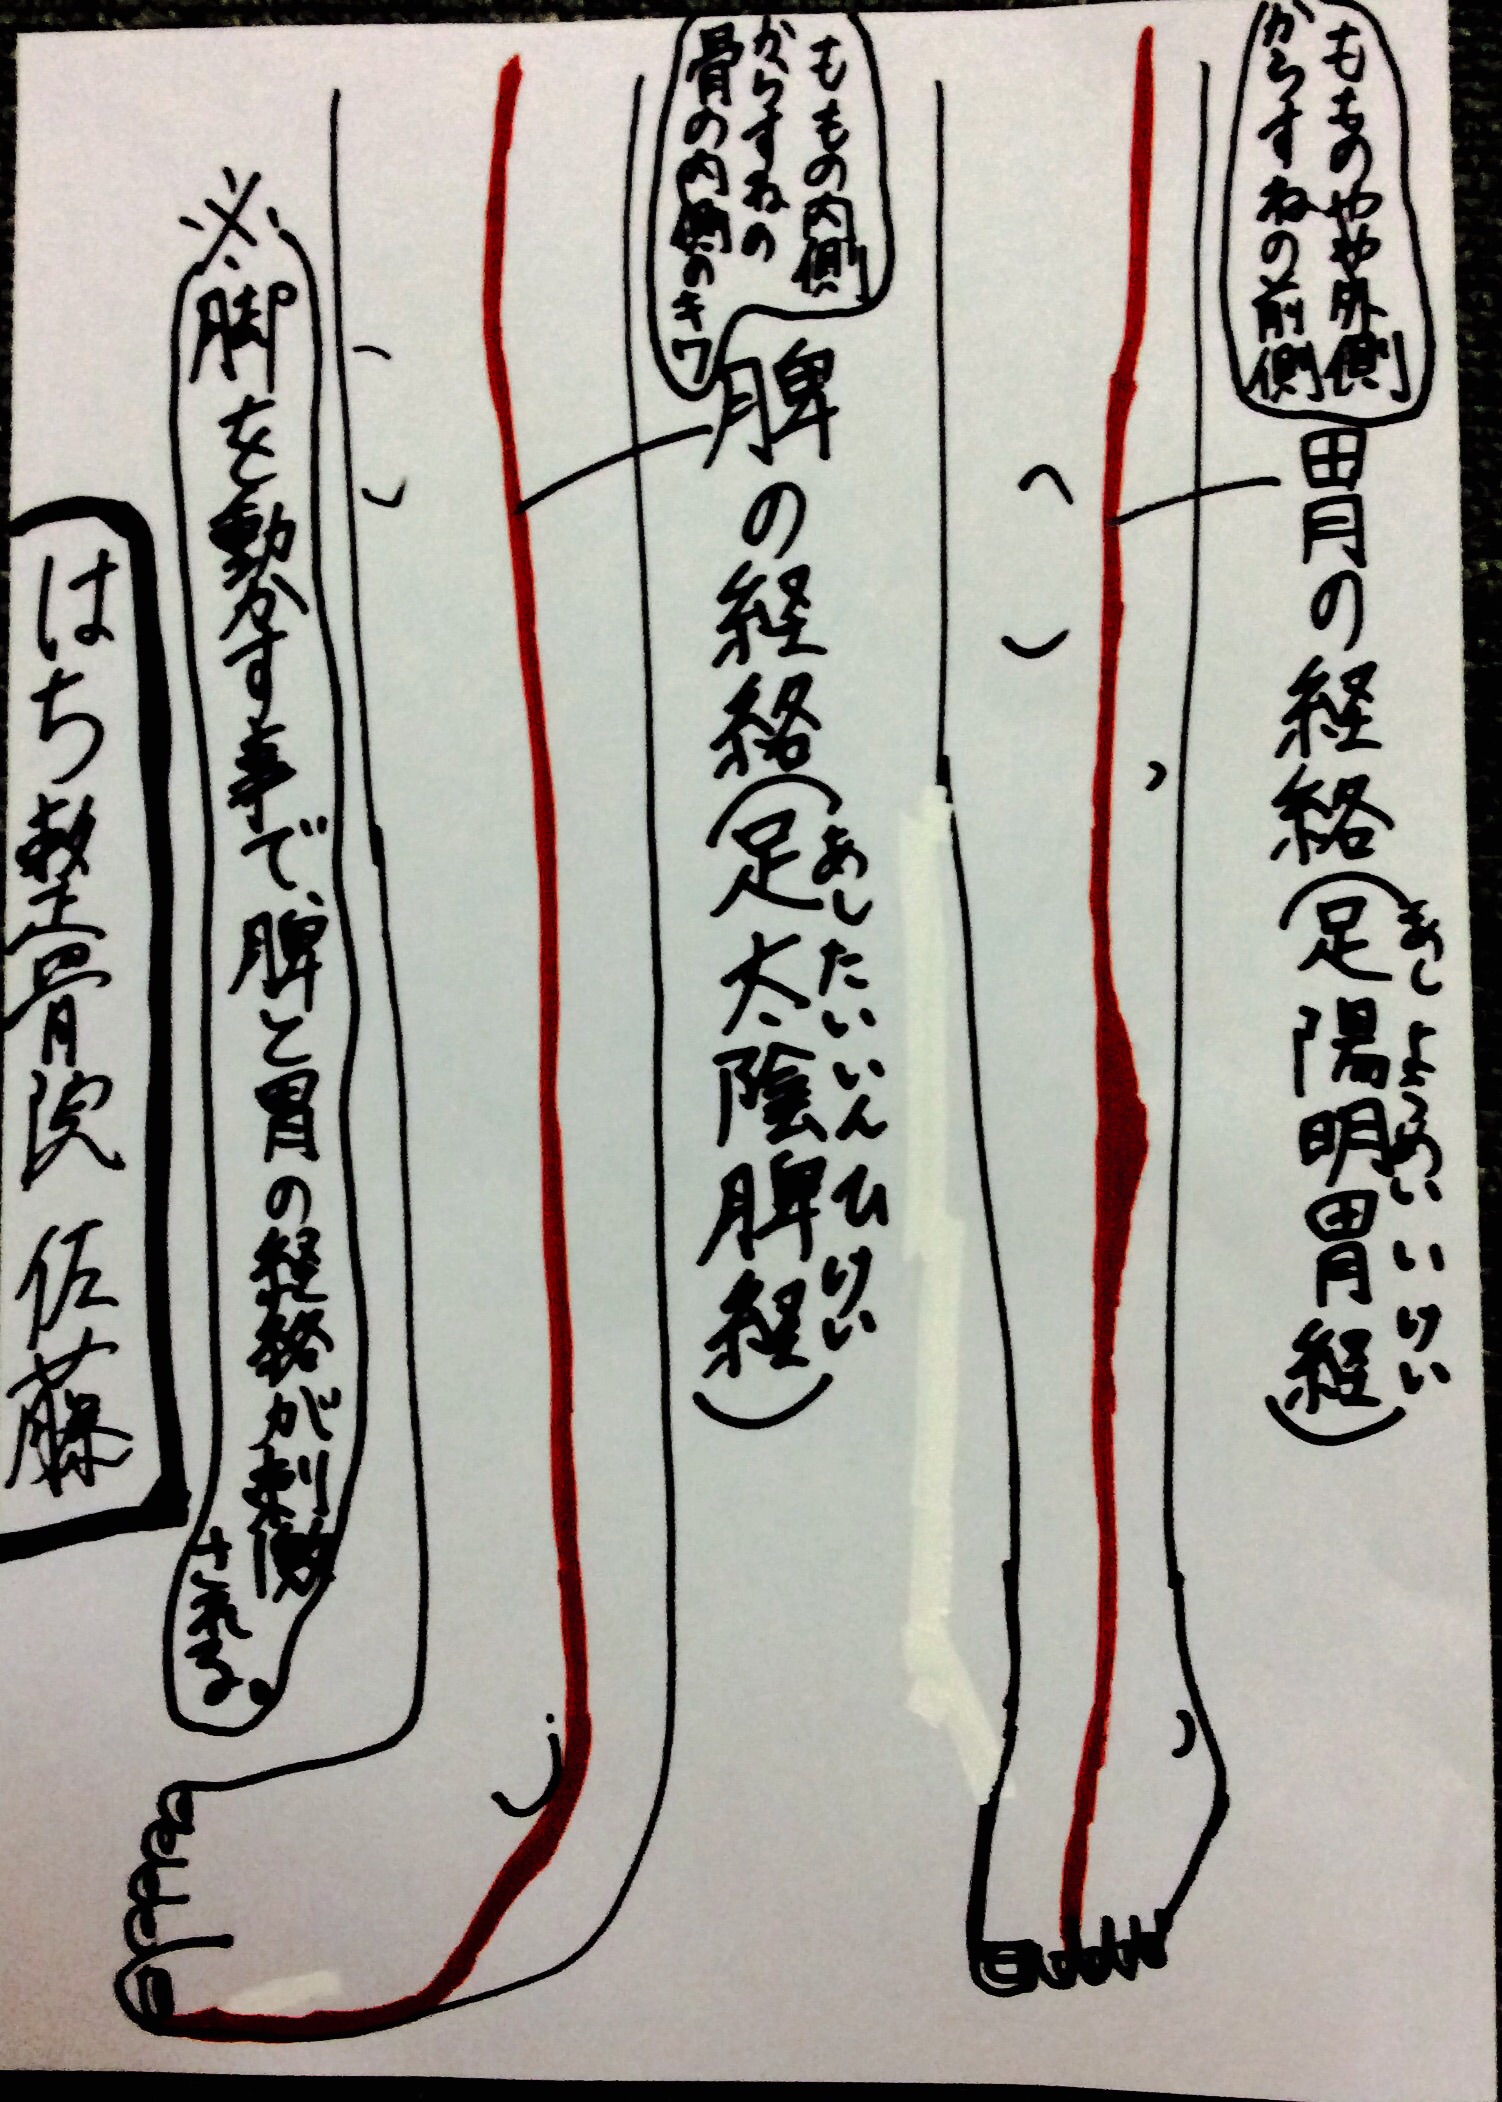 もものやや外側
からすねの前側
胃の経絡(足陽明胃経)
あしようめいいけい
ももの内側
からすねの
骨の内側のキワ
脾の経絡(足太陰脾経)
あしたいいんひけい
※脚を動かす事で、脾と胃の経絡が刺激
される。
はち整骨院 佐藤